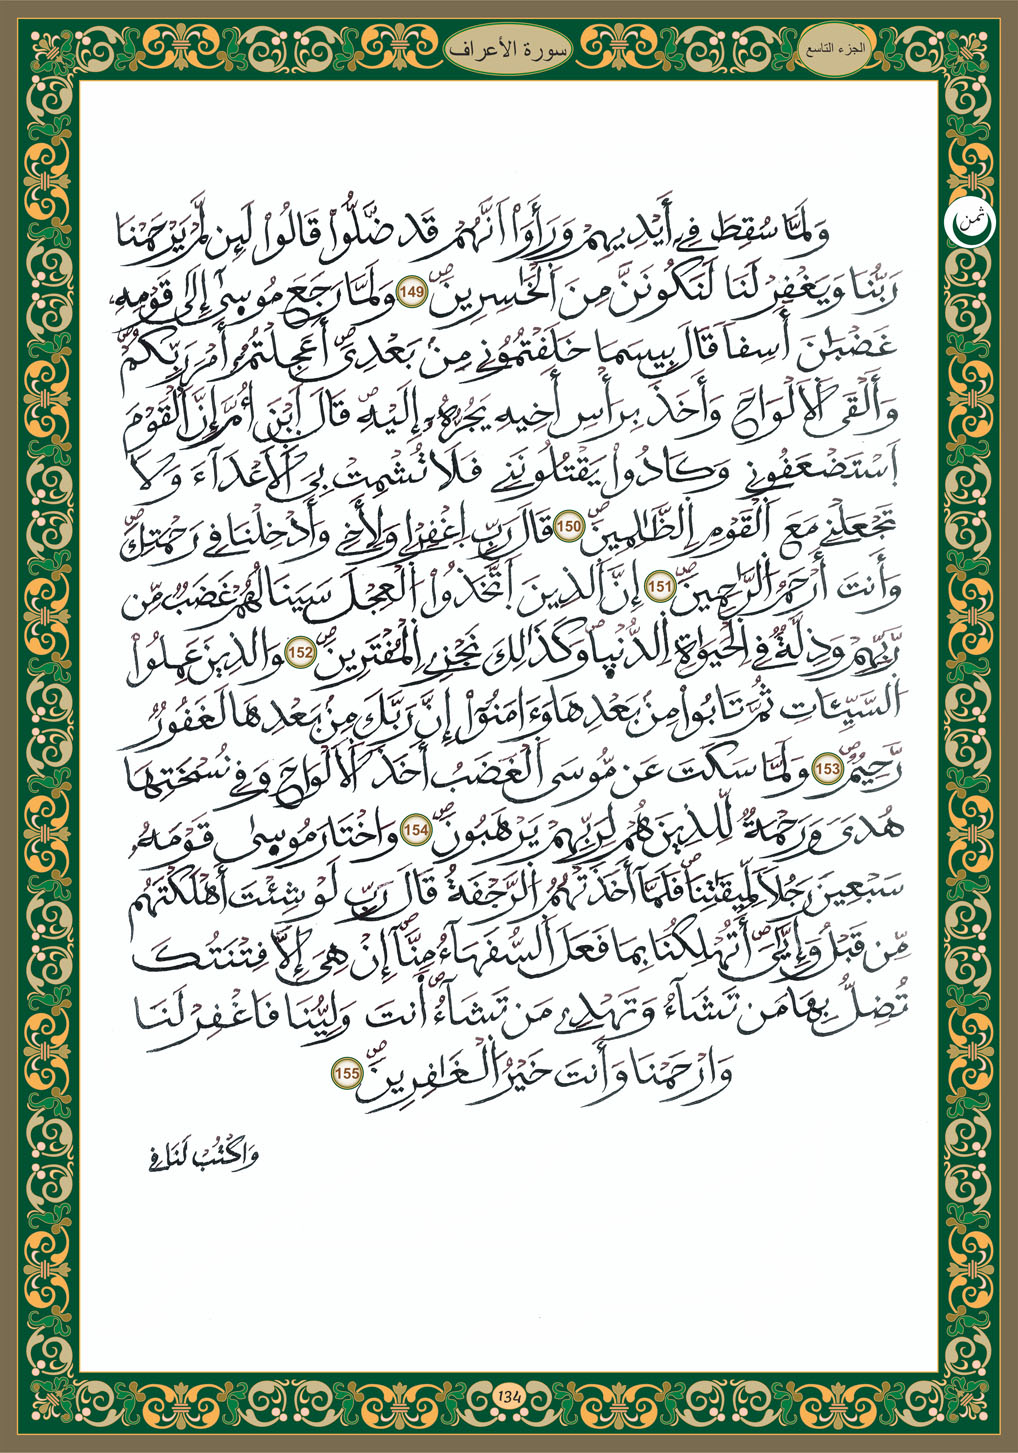 الجزء التاسع
سورة الأعراف
ثمن
وَلَمَّا سُقِطَ فِے أَيْدِيهِمْ وَرَأَوَاْ اَنَّهُمْ قَد ضَّلُّواْ قَالُواْ لَئِن لَّمْ يَرْحَمْنَا
رَبُّنَا وَيَغْفِرْ لَنَا لَنَكُونَنَّ مِنَ اَلْخَٰسِرِينَۖ 149 وَلَمَّا رَجَعَ مُوس۪ىٰٓ إِلَىٰ قَوْمِهِۦ
غَضْبَٰنَ أَسِفاٗ قَالَ بِيسَمَا خَلَفْتُمُونِے مِنۢ بَعْدِيَۖ أَعَجِلْتُمُۥٓ أَمْرَ رَبِّكُمْۖ
وَأَلْقَى اَلَالْوَاحَ وَأَخَذَ بِرَأْسِ أَخِيهِ يَجُرُّهُۥٓ إِلَيْهِۖ قَالَ اَبْنَ أُمَّ إِنَّ اَلْقَوْمَ
اَسْتَضْعَفُونِے وَكَادُواْ يَقْتُلُونَنِے فَلَا تُشْمِتْ بِيَ اَلَاعْدَآءَ وَلَا
تَجْعَلْنِے مَعَ اَلْقَوْمِ اِلظَّٰلِمِينَۖ 150 قَالَ رَبِّ اِغْفِرْ لِے وَلِأَخِے وَأَدْخِلْنَا فِے رَحْمَتِكَۖ
وَأَنتَ أَرْحَمُ اُلرَّٰحِمِينَۖ 151 إِنَّ اَلذِينَ اَتَّخَذُواْ اُلْعِجْلَ سَيَنَالُهُمْ غَضَبٞ مِّن
رَّبِّهِمْ وَذِلَّةٞ فِے اِلْحَيَوٰةِ اِلدُّنْي۪اۖ وَكَذَٰلِكَ نَجْزِے اِلْمُفْتَرِينَۖ 152 وَالذِينَ عَمِلُواْ
اُلسَّيِّـَٔاتِ ثُمَّ تَابُواْ مِنۢ بَعْدِهَا وَءَامَنُوٓاْ إِنَّ رَبَّكَ مِنۢ بَعْدِهَا لَغَفُورٞ
رَّحِيمٞۖ 153 وَلَمَّا سَكَتَ عَن مُّوسَى اَلْغَضَبُ أَخَذَ اَلَالْوَاحَ وَفِے نُسْخَتِهَا
هُدىٗ وَرَحْمَةٞ لِّلذِينَ هُمْ لِرَبِّهِمْ يَرْهَبُونَۖ 154 وَاخْتَارَ مُوس۪ىٰ قَوْمَهُۥ
سَبْعِينَ رَجُلاٗ لِّمِيقَٰتِنَاۖ فَلَمَّآ أَخَذَتْهُمُ اُلرَّجْفَةُ قَالَ رَبِّ لَوْ شِئْتَ أَهْلَكْتَهُم
مِّن قَبْلُ وَإِيَّٰيَۖ أَتُهْلِكُنَا بِمَا فَعَلَ اَلسُّفَهَآءُ مِنَّآۖ إِنْ هِيَ إِلَّا فِتْنَتُكَ
تُضِلُّ بِهَا مَن تَشَآءُ وَتَهْدِے مَن تَشَآءُۖ أَنتَ وَلِيُّنَا فَاغْفِرْ لَنَا
وَارْحَمْنَا وَأَنتَ خَيْرُ اُلْغَٰفِرِينَۖ 155
وَاكْتُبْ لَنَا فِے
134